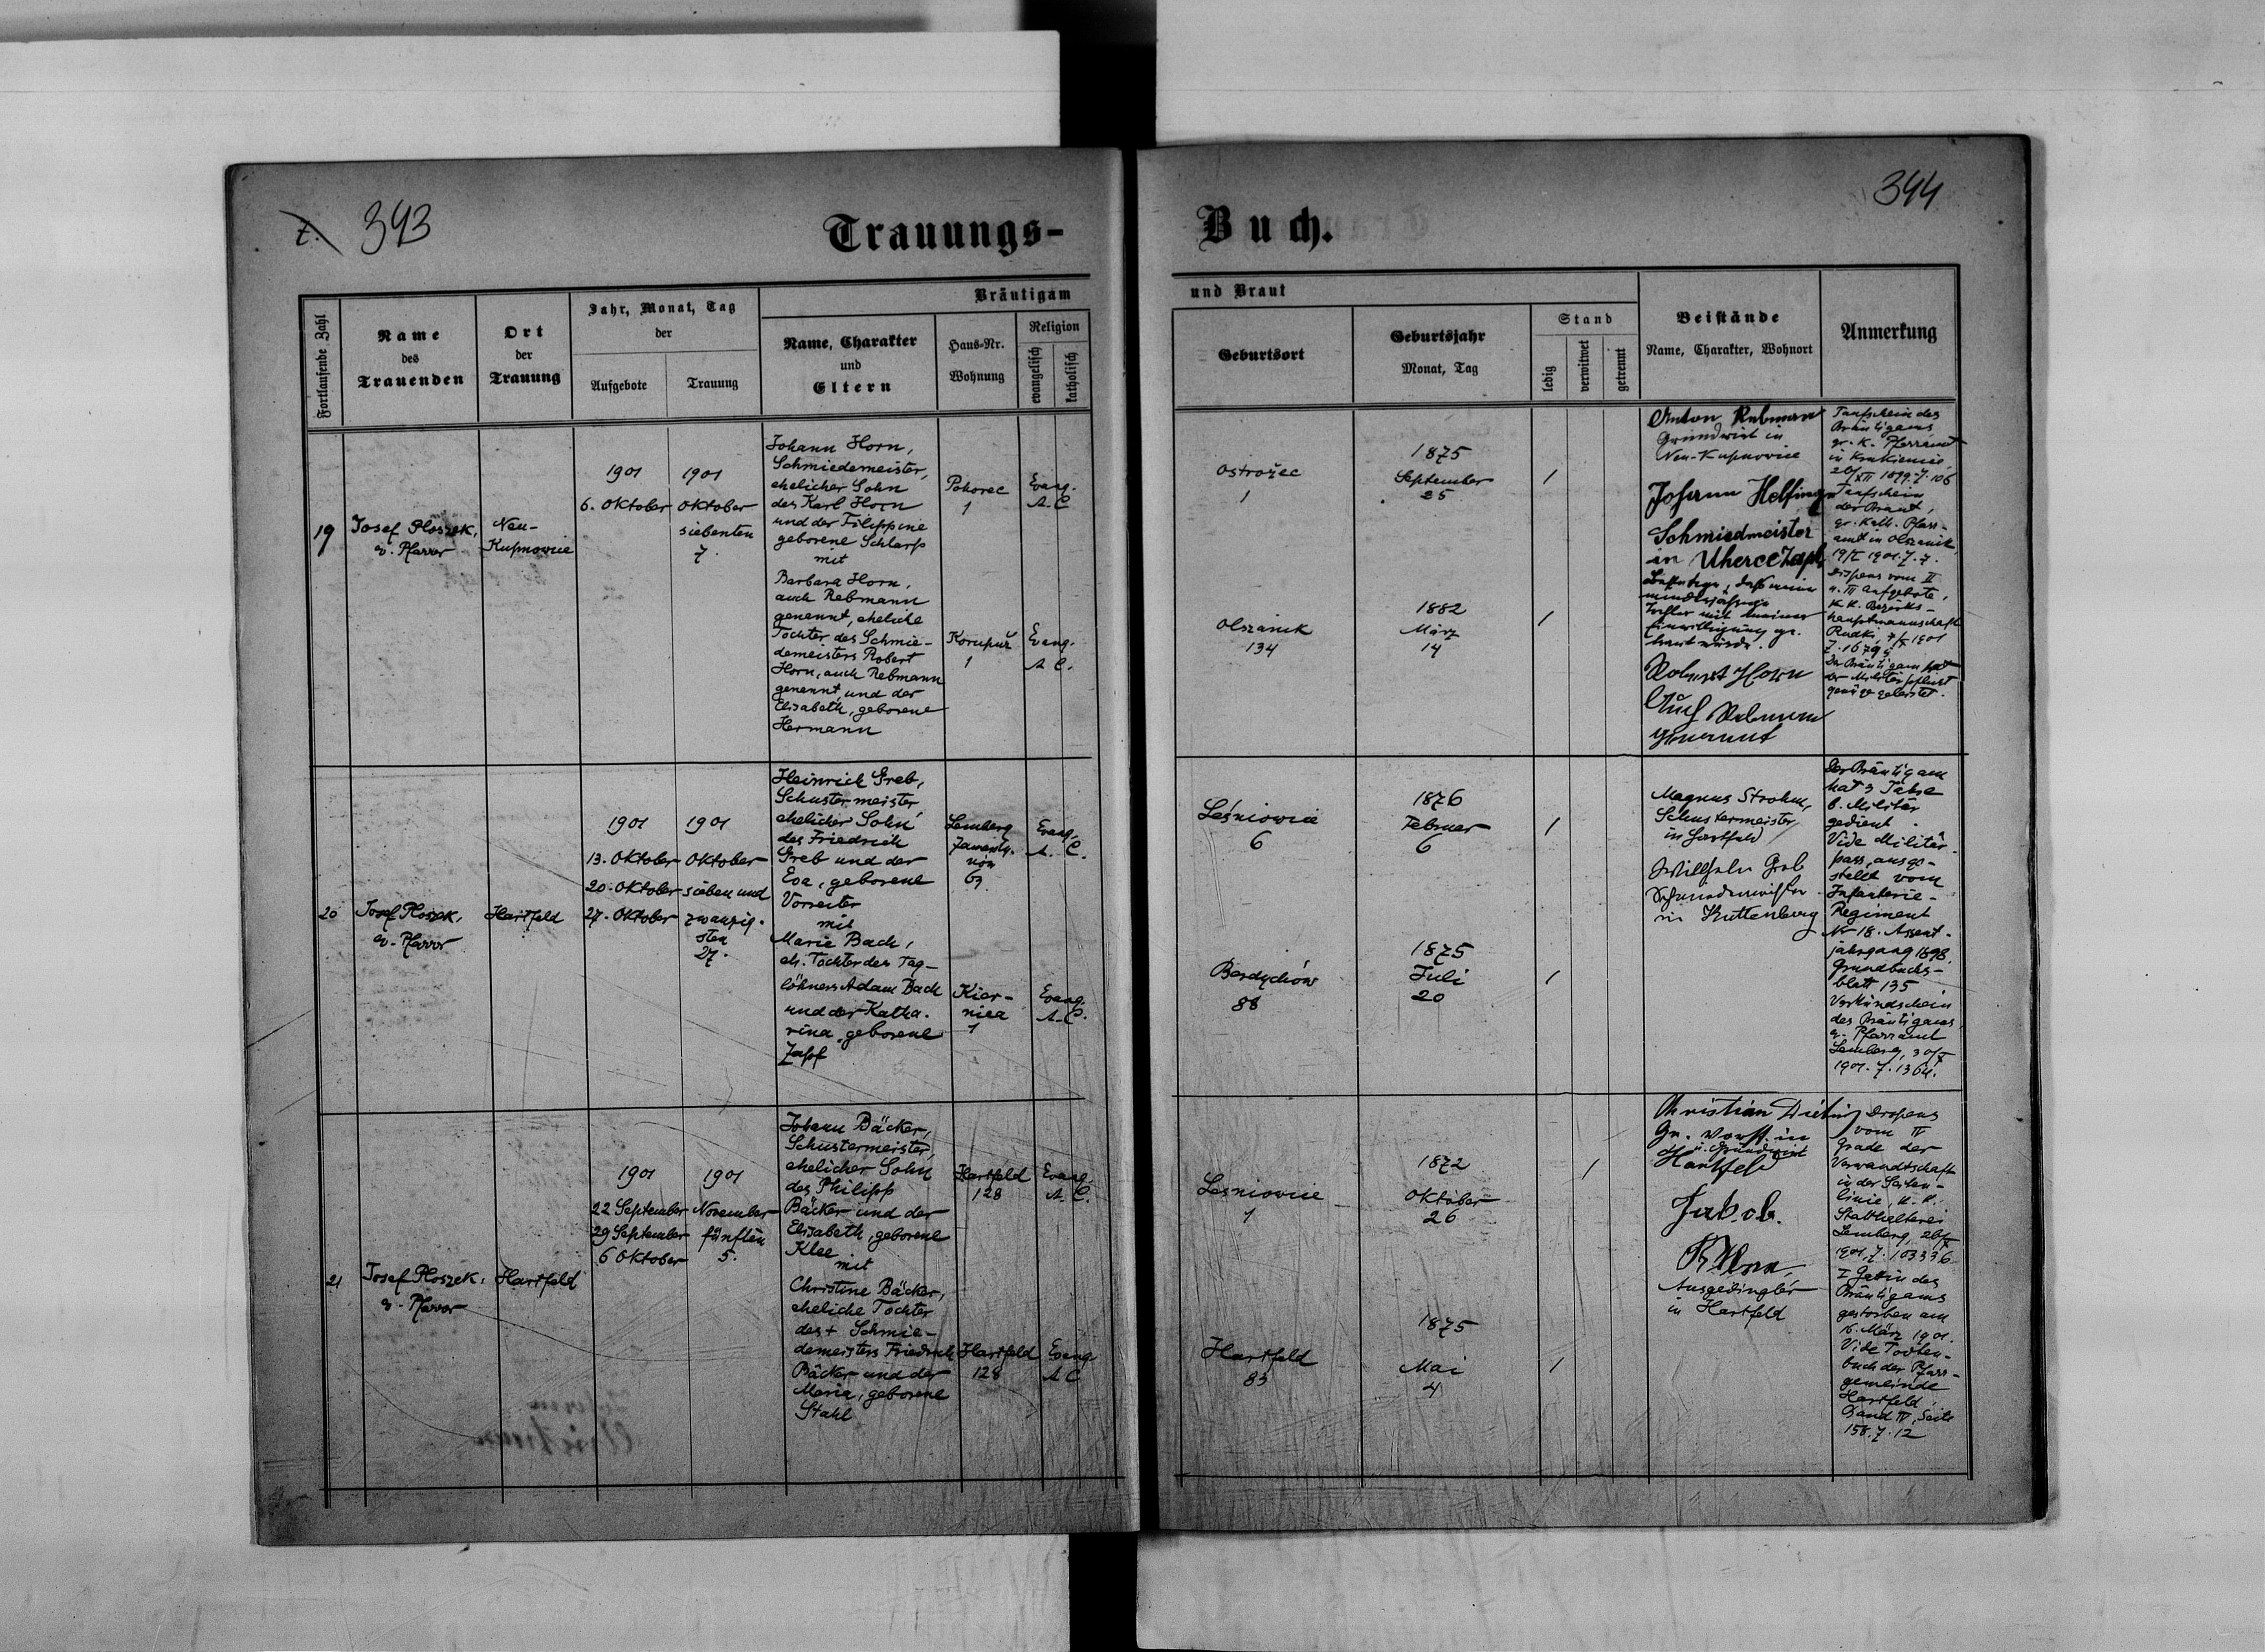 343
344
Trauungs-
Buch.
Fortlaufende Zahl
Name
des
Trauenden
Ort
der
Trauung
Jahr, Monat, Tag
der
Aufgebote
Trauung
Bräutigam
Name, Charakter
und
Eltern
Haus-Nr.
Wohnung
Religion
evangelisch
katholisch
und Braut
Geburtsort
Geburtsjahr
Monat, Tag
Stand
ledig
verwitwet
getrennt
Beistände
Name, Charakter, Wohnort
Anmerkung
19
Josef Ploszek,
ev. Pfarrer
Neu-
Kupnowice
1901
6. Oktober
1901
Oktober
siebenten
7.
Johann Horn,
Schmiedemeister,
ehelicher Sohn
des Karl Horn
und der Filippine
geborene Schlarp
mit
Barbara Horn,
auch Rebmann
genennt, eheliche
Tochter des Schmie-
demeisters Robert
Horn, auch Rebmann
genennt, und der
Elisabeth, geborene
Hermann
Pohorec
1
Evang.
A. C.
Koropuž
1
Evang.
A. C.
Ostrožec
1
1875
September
25
/
Olszanik
134
1882
März
14
/
Anton Rebmann
Grundwirt in
Neu-Kupnowice
Johann Helfinger
Schmiedmeister
in Uherce Zapł
minderjährige
Tochter mit meiner
Einwilligung ge-
traut wurde.
Robert Horn
Auch Rebmann
genannt
Taufschein des
Bräutigams
gr. k. Pfarramt
in
1899. Z. 106
Taufschein
der Braut,
gr. kath. Pfarr-
amt in Olszanik
1901. Z. 7.
Dispens vom II
u. III Aufgebote,
k. k. Bezirks-
hauptmannschaft
Rudki, 1901
Der Bräutigam hat
der Militärpflicht
genüge geleistet.
20
Josef Ploszek,
ev. Pfarrer
Hartfeld
1901
13. Oktober
20. Oktober
27. Oktober
1901
Oktober
sieben und
zwanzig-
sten
27.
Heinrich Greb,
Schustermeister
ehelicher Sohn
des Friedrich
Greb und der
Eva, geborene
Vorreiter
mit
Marie Bach,
eh. Tochter des Tag-
löhners Adam Bach
und der Katha-
rina, geborene
Zapf
Lemberg
Evang.
A. C.
Kier-
nica
1
Evang.
A. C.
Leśniowice
6
1876
Februar
6
/
Berdychów
88
1875
Juli
20
/
Magnus Strohm,
Schustermeister
in Hartfeld
Willhelm Greb
Schmiedemeister
in Kuttenberg
Der Bräutigam
hat 3 Jahre
b. Militär
gedient.
Vide Militär-
pass, ausge-
stellt vom
Infanterie-
Regiment
No 18. Assent-
jahrgang 1898.
Grundbuchs-
blatt 135
Verkündschein
des Bräutigams,
ev. Pfarramt
Lemberg, 30/X
1901. Z. 1364.
21
Josef Ploszek,
ev. Pfarrer
Hartfeld
1901
22 September
29 September
6 Oktober
1901
November
fünften
5.
Johann Bäcker,
Schustermeister,
ehelicher Sohn
des Philipp
Bäcker und der
Elisabeth, geborene
Klee
mit
Christine Bäcker,
eheliche Tochter
des + Schmie-
demeisters Friedrich
Bäcker und der
Maria, geborene
Stahl
Hartfeld
128
Evang.
A. C.
Hartfeld
128
Evang
A C
Leśniowice
1
1872
Oktober
26
/
Hartfeld
83
1875
Mai
4
/
Christian
Gr. Vorst. in
u. Grundwirt
Hartfeld
Jakob.
Ausgedingler
in Hartfeld
Dispens
vom IV
Grade der
Verwandtschaft
in der Seiten-
linie, k. k.
Statthalterei
Lemberg,
1901, Z. 103336
I Gattin des
Bräutigams
gestorben am
16. März 1901.
Vide Todten-
buch der Pfarr-
gemeinde
Hartfeld,
Band IV, Seite
158. Z. 12